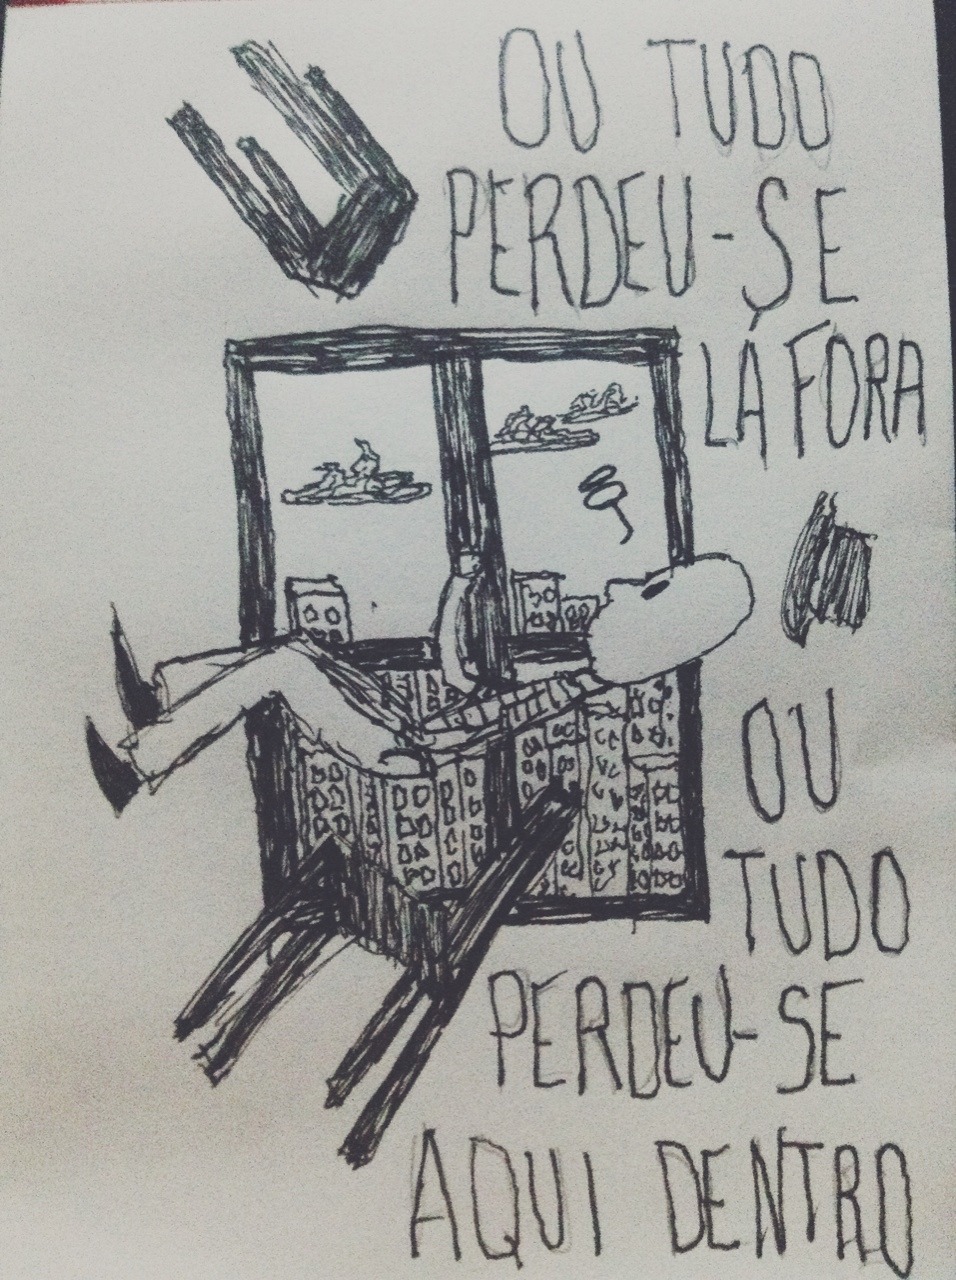 OU TUDO
PERDEU-SE
LÁ FORA
OU
TUDO
PERDEU-SE
AQUI DENTRO